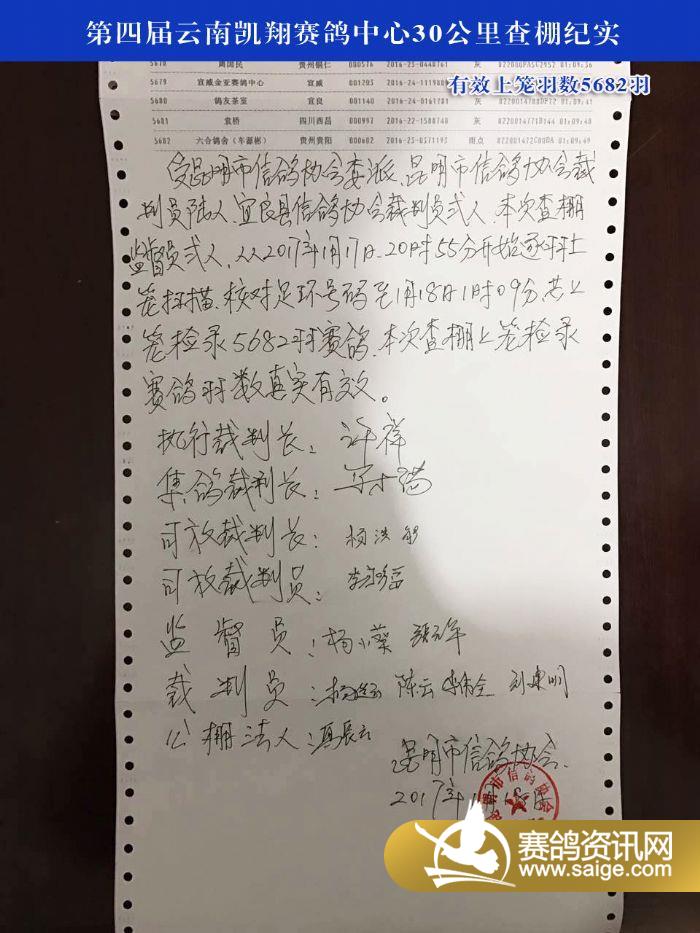 第四届云南凯翔赛鸽中心30公里查棚纪实
有效上笼羽数5682羽
5678 周国民 贵州铜仁 000576 2016-23-0448761 灰 01:09:36
5679 宣威金亚赛鸽中心 宣威 001293 灰
5680 鸽友茶室 宜良 001140 灰 01:09:41
5681 袁桥 四川西昌 000997 2016-22-1588748 灰 01:09:48
5682 六合鸽舍(车源彬) 贵州贵阳 000602 2016-23-0371193 雨点 01:09:49
受昆明市信鸽协会委派、昆明市信鸽协会裁
判员陆人、宜良县信鸽协会裁判员弍人、本次查棚
监督员弍人、从2017年1月17日、20时55分开始逐羽上
笼扫描、核对足环号码至1月18日1时09分、共上
笼检录5682羽赛鸽、本次查棚上笼检录
赛鸽羽数真实有效。
执行裁判长：许祥
集鸽裁判长：
司放裁判长：杨洪
司放裁判员：
监督员：杨小葵
裁判员： 陈云 刘建明
公棚法人：
昆明市信鸽协会、
2017年1月18日
赛鸽资讯网
www.saige.com